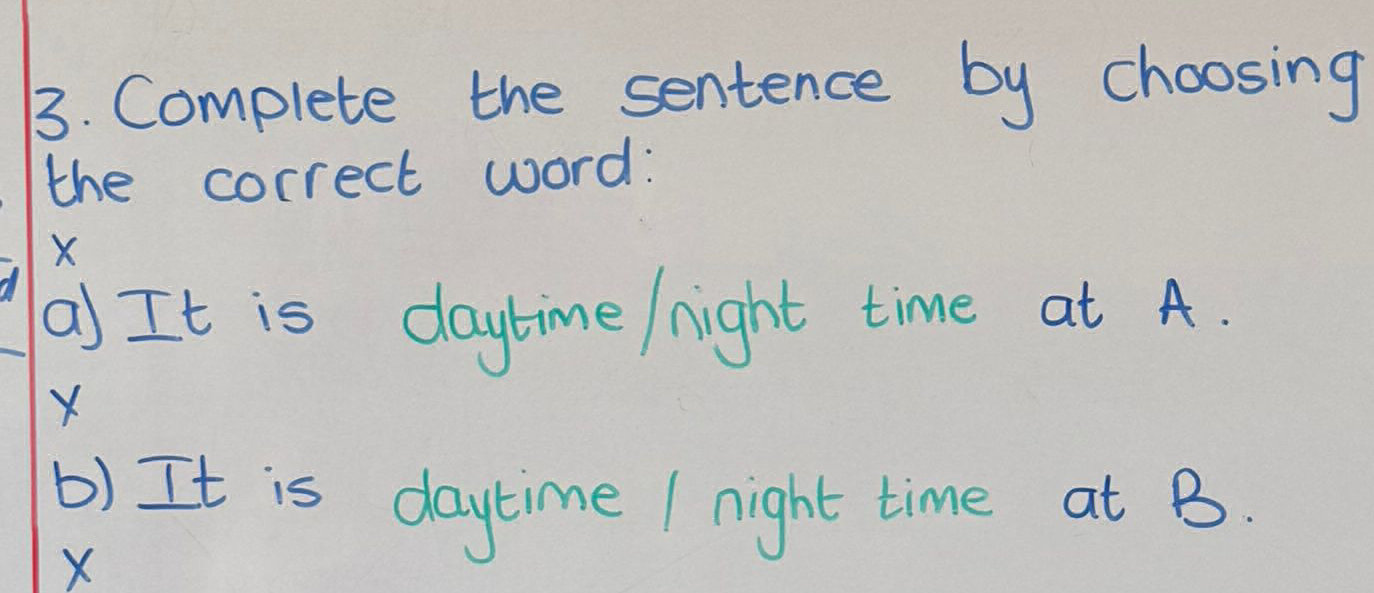 3. Complete the sentence by choosing
the correct word:
x
a) It is daytime/night time at A.
x
b) It is daytime / night time at B.
x